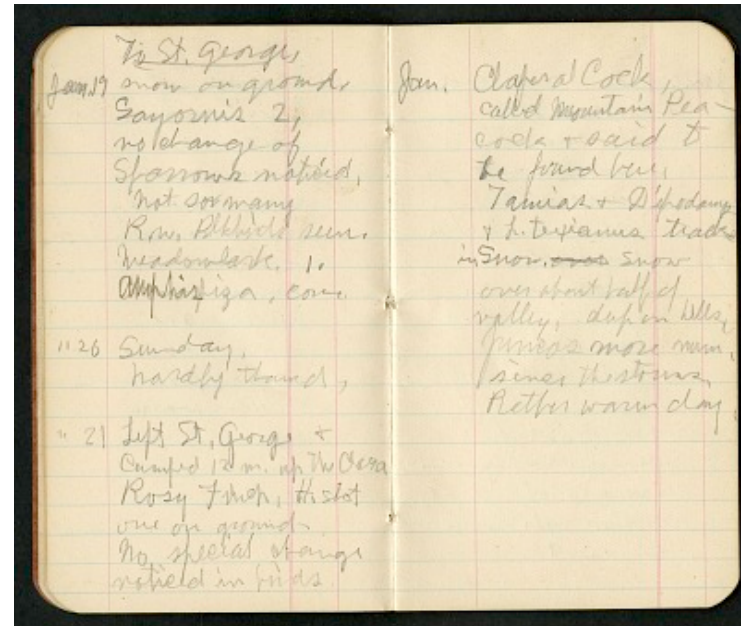 To St. George,
Jan 19 snow on ground,
Sayornis 2,
no change of
Sparrows noticed,
not so many
R.W. Blkbirds seen.
Meadowlark. 1.
Amphispiza, com.
" 20 Sunday,
hardly thawed,
" 21 Left St. George &
Camped 12 m. up the Clara
Rosy Finch, H. shot
one on ground.
No special change
noticed in birds.
Jan. Chaparal Cock,
called Mountain Pea-
cock & said to
be found here,
Tamias & Dipodomys
& L. texianus tracks
in Snow. Snow
over about half of
valley, deep on hills,
Juncos more num.
since the storm,
Rather warm day,